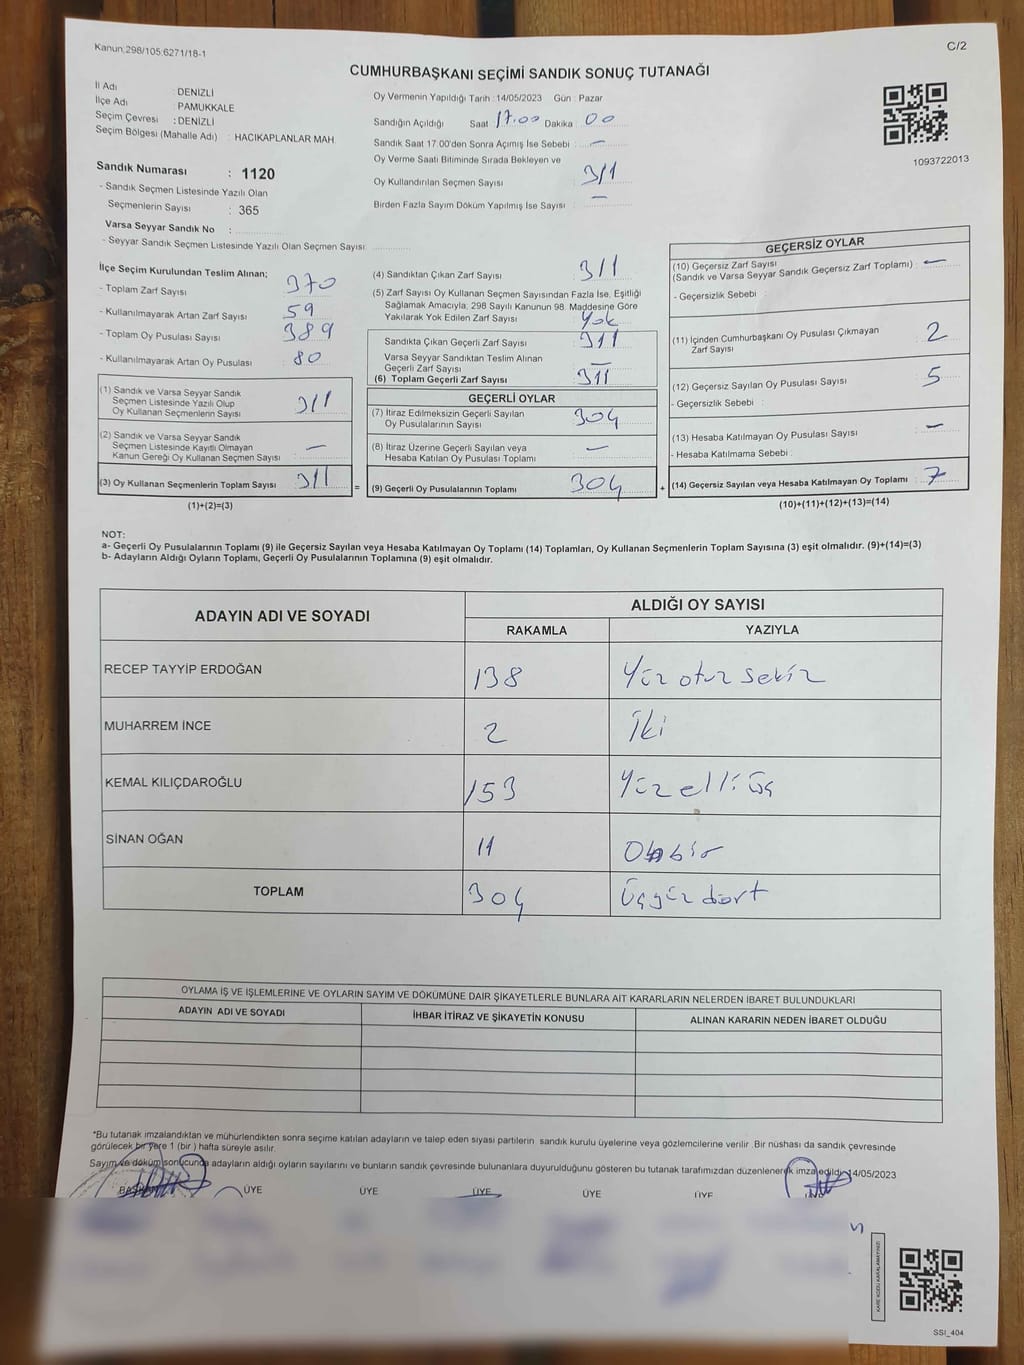 Kanun:298/105:6271/18-1
C/2
CUMHURBAŞKANI SEÇİMİ SANDIK SONUÇ TUTANAĞI
İl Adı : DENİZLİ
İlçe Adı : PAMUKKALE
Seçim Çevresi : DENİZLİ
Seçim Bölgesi (Mahalle Adı) : HACIKAPLANLAR MAH
Sandık Numarası : 1120
- Sandık Seçmen Listesinde Yazılı Olan
Seçmenlerin Sayısı : 365
Varsa Seyyar Sandık No :
- Seyyar Sandık Seçmen Listesinde Yazılı Olan Seçmen Sayısı
Oy Vermenin Yapıldığı Tarih : 14/05/2023 Gün : Pazar
Sandığın Açıldığı Saat 17.00 Dakika : 00
Sandık Saat 17.00'den Sonra Açımış İse Sebebi : —
Oy Verme Saati Bitiminde Sırada Bekleyen ve
Oy Kullandırılan Seçmen Sayısı : 311
Birden Fazla Sayım Döküm Yapılmış İse Sayısı : —
1093722013
İlçe Seçim Kurulundan Teslim Alınan;
- Toplam Zarf Sayısı : 370
- Kullanılmayarak Artan Zarf Sayısı : 59
- Toplam Oy Pusulası Sayısı : 389
- Kullanılmayarak Artan Oy Pusulası : 80
(1) Sandık ve Varsa Seyyar Sandık
Seçmen Listesinde Yazılı Olup
Oy Kullanan Seçmenlerin Sayısı : 311
(2) Sandık ve Varsa Seyyar Sandık
Seçmen Listesinde Kayıtlı Olmayan
Kanun Gereği Oy Kullanan Seçmen Sayısı : —
(3) Oy Kullanan Seçmenlerin Toplam Sayısı : 311 =
(1)+(2)=(3)
(4) Sandıktan Çıkan Zarf Sayısı : 311
(5) Zarf Sayısı Oy Kullanan Seçmen Sayısından Fazla İse, Eşitliği
Sağlamak Amacıyla; 298 Sayılı Kanunun 98. Maddesine Göre
Yakılarak Yok Edilen Zarf Sayısı : Yok
Sandıkta Çıkan Geçerli Zarf Sayısı : 311
Varsa Seyyar Sandıktan Teslim Alınan
Geçerli Zarf Sayısı : —
(6) Toplam Geçerli Zarf Sayısı : 311
GEÇERLİ OYLAR
(7) İtiraz Edilmeksizin Geçerli Sayılan
Oy Pusulalarının Sayısı : 304
(8) İtiraz Üzerine Geçerli Sayılan veya
Hesaba Katılan Oy Pusulası Toplamı : —
(9) Geçerli Oy Pusulalarının Toplamı : 304 +
GEÇERSİZ OYLAR
(10) Geçersiz Zarf Sayısı
(Sandık ve Varsa Seyyar Sandık Geçersiz Zarf Toplamı) : —
- Geçersizlik Sebebi :
(11) İçinden Cumhurbaşkanı Oy Pusulası Çıkmayan
Zarf Sayısı : 2
(12) Geçersiz Sayılan Oy Pusulası Sayısı : 5
- Geçersizlik Sebebi :
(13) Hesaba Katılmayan Oy Pusulası Sayısı : —
- Hesaba Katılmama Sebebi :
(14) Geçersiz Sayılan veya Hesaba Katılmayan Oy Toplamı : 7
(10)+(11)+(12)+(13)=(14)
NOT:
a- Geçerli Oy Pusulalarının Toplamı (9) ile Geçersiz Sayılan veya Hesaba Katılmayan Oy Toplamı (14) Toplamları, Oy Kullanan Seçmenlerin Toplam Sayısına (3) eşit olmalıdır. (9)+(14)=(3)
b- Adayların Aldığı Oyların Toplamı, Geçerli Oy Pusulalarının Toplamına (9) eşit olmalıdır.
ADAYIN ADI VE SOYADI
ALDIĞI OY SAYISI
RAKAMLA YAZIYLA
RECEP TAYYİP ERDOĞAN 138 Yüz otuz sekiz
MUHARREM İNCE 2 İki
KEMAL KILIÇDAROĞLU 153 Yüz elli üç
SİNAN OĞAN 11 Onbir
TOPLAM 304 Üçyüz dört
OYLAMA İŞ VE İŞLEMLERİNE VE OYLARIN SAYIM VE DÖKÜMÜNE DAİR ŞİKAYETLERLE BUNLARA AİT KARARLARIN NELERDEN İBARET BULUNDUKLARI
ADAYIN ADI VE SOYADI İHBAR İTİRAZ VE ŞİKAYETİN KONUSU ALINAN KARARIN NEDEN İBARET OLDUĞU
*Bu tutanak imzalandıktan ve mühürlendikten sonra seçime katılan adayların ve talep eden siyasi partilerin sandık kurulu üyelerine veya gözlemcilerine verilir. Bir nüshası da sandık çevresinde
görülecek bir yere 1 (bir ) hafta süreyle asılır.
Sayım ve döküm sonucunda adayların aldığı oyların sayılarını ve bunların sandık çevresinde bulunanlara duyurulduğunu gösteren bu tutanak tarafımızdan düzenlenerek imza edildi. 14/05/2023
BAŞKAN ÜYE ÜYE ÜYE ÜYE ÜYE
KARE KODU KARALAMAYINIZ!
SSI_404